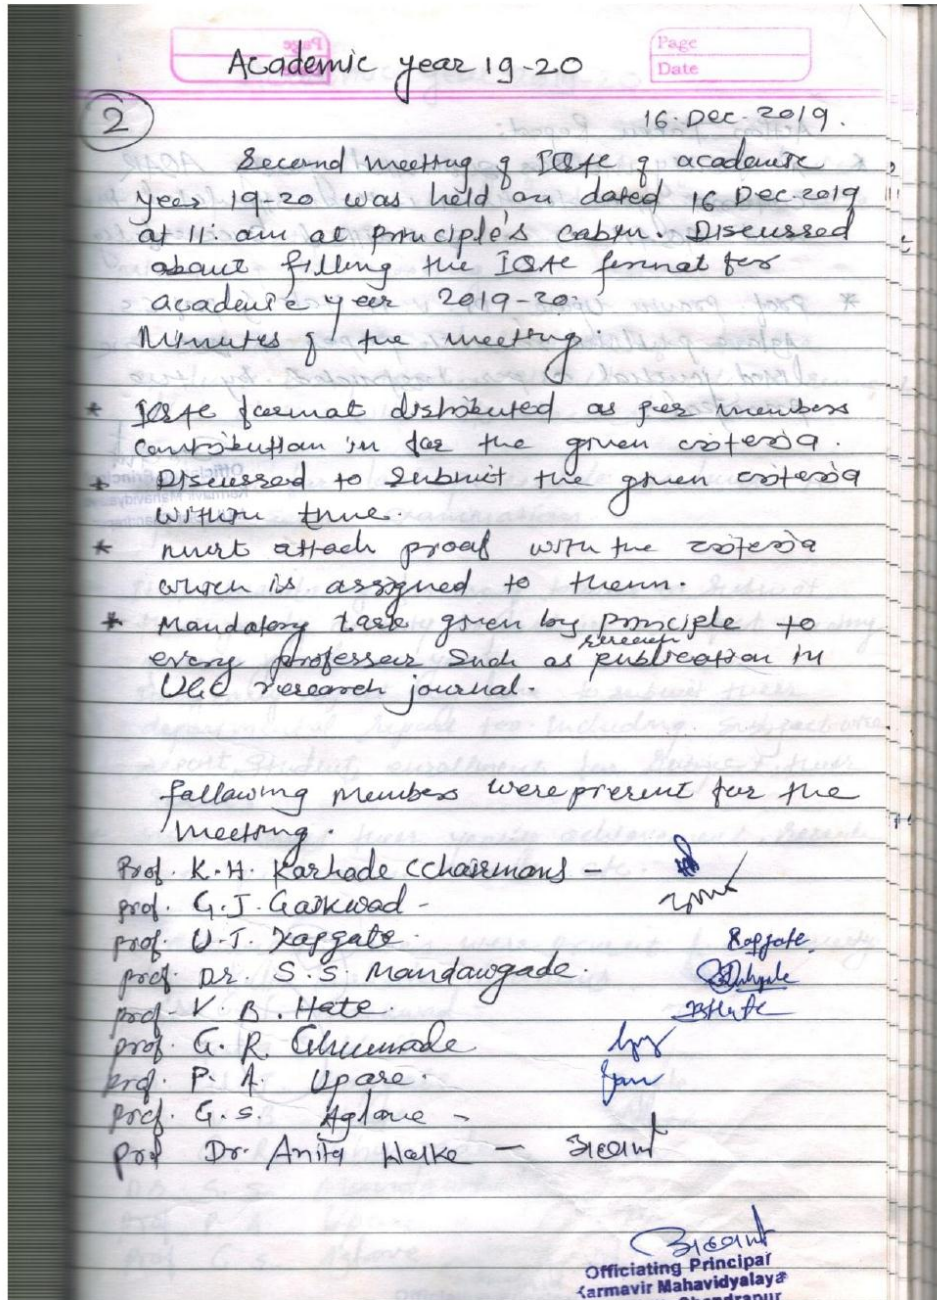 Academic year 19-20
Page
Date
2
16. Dec. 2019.
Second meeting of IQAC of academic
year 19-20 was held on dated 16 Dec. 2019
at 11. am at principle's cabin. Discussed
about filling the IQAC format for
academic year 2019-20.
Minutes of the meeting.
* IQAC format distributed as per members
contribution in for the given criteria.
* Discussed to submit the given criteria
within time.
* must attach proof with the criteria
which is assigned to them.
* Mandatory task given by principle to
every professor such as research publication in
UGC research journal.
following members were present for the
meeting.
Prof. K.H. Karhade (chairman) -
prof. G.J. Gaikwad -
prof. U.T. Kapgate. Kapgate
prof. Dr. S.S. Mandawgade.
prof. V.B. Hate.
prof. G.R. Ghumade
prof. P.A. Upare.
prof. G.S. Aglave -
prof Dr. Anita Walke -
Officiating Principal
Karmavir Mahavidyalaya
Chandrapur